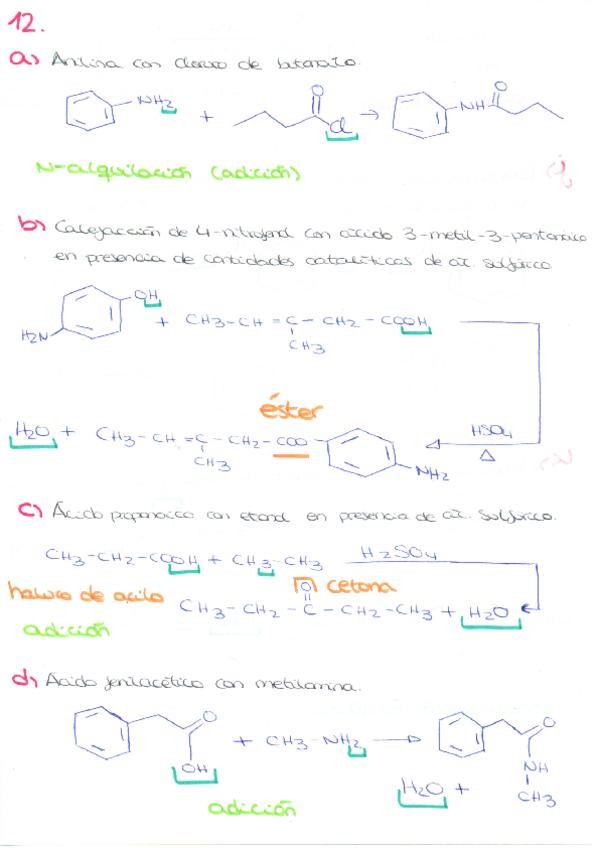 12.
a) Anilina con cloruro de butanoilo.
NH2 + O Cl → NH O
N-alquilación (adición)
b) Calefacción de 4-nitrofenol con ácido 3-metil-3-pentenoico
en presencia de cantidades catalíticas de ác. sulfúrico
OH
H2N + CH3-CH=C-CH2-COOH
CH3
éster
H2O + CH3-CH=C-CH2-COO HSO4
CH3 NH2 Δ
c) Ácido propanoico con etanol en presencia de ác. sulfúrico.
CH3-CH2-COOH + CH3-CH3 H2SO4
haluro de acilo O cetona
CH3-CH2-C-CH2-CH3 + H2O
adición
d) Ácido fenilacético con metilamina.
O O
+ CH3-NH2
OH NH
H2O + CH3
adición